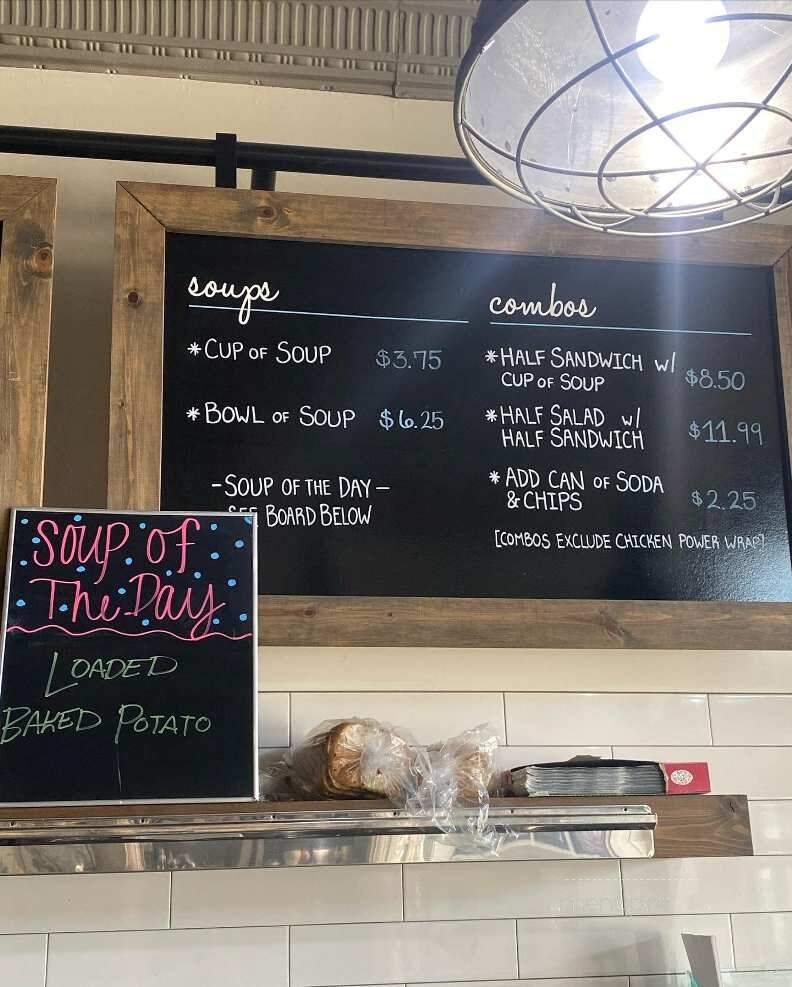 soups
*CUP OF SOUP $3.75
*BOWL OF SOUP $6.25
-SOUP OF THE DAY-
SEE BOARD BELOW
combos
*HALF SANDWICH w/
CUP OF SOUP $8.50
*HALF SALAD w/
HALF SANDWICH $11.99
*ADD CAN OF SODA
& CHIPS $2.25
[COMBOS EXCLUDE CHICKEN POWER WRAP]
SOUP OF
The Day
LOADED
BAKED POTATO